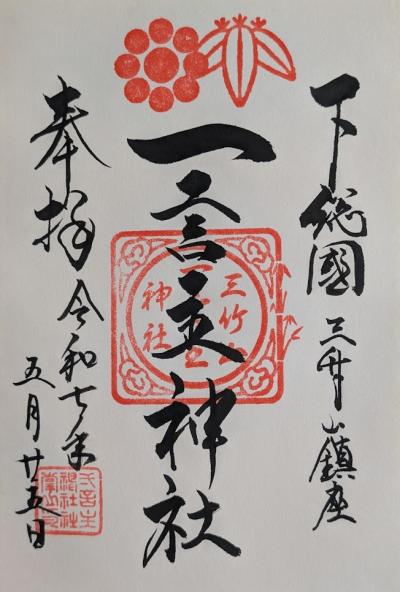 下総國 三竹山鎮座
一言主神社
三竹山
一言主
神社
奉拝 令和七年
五月廿五日